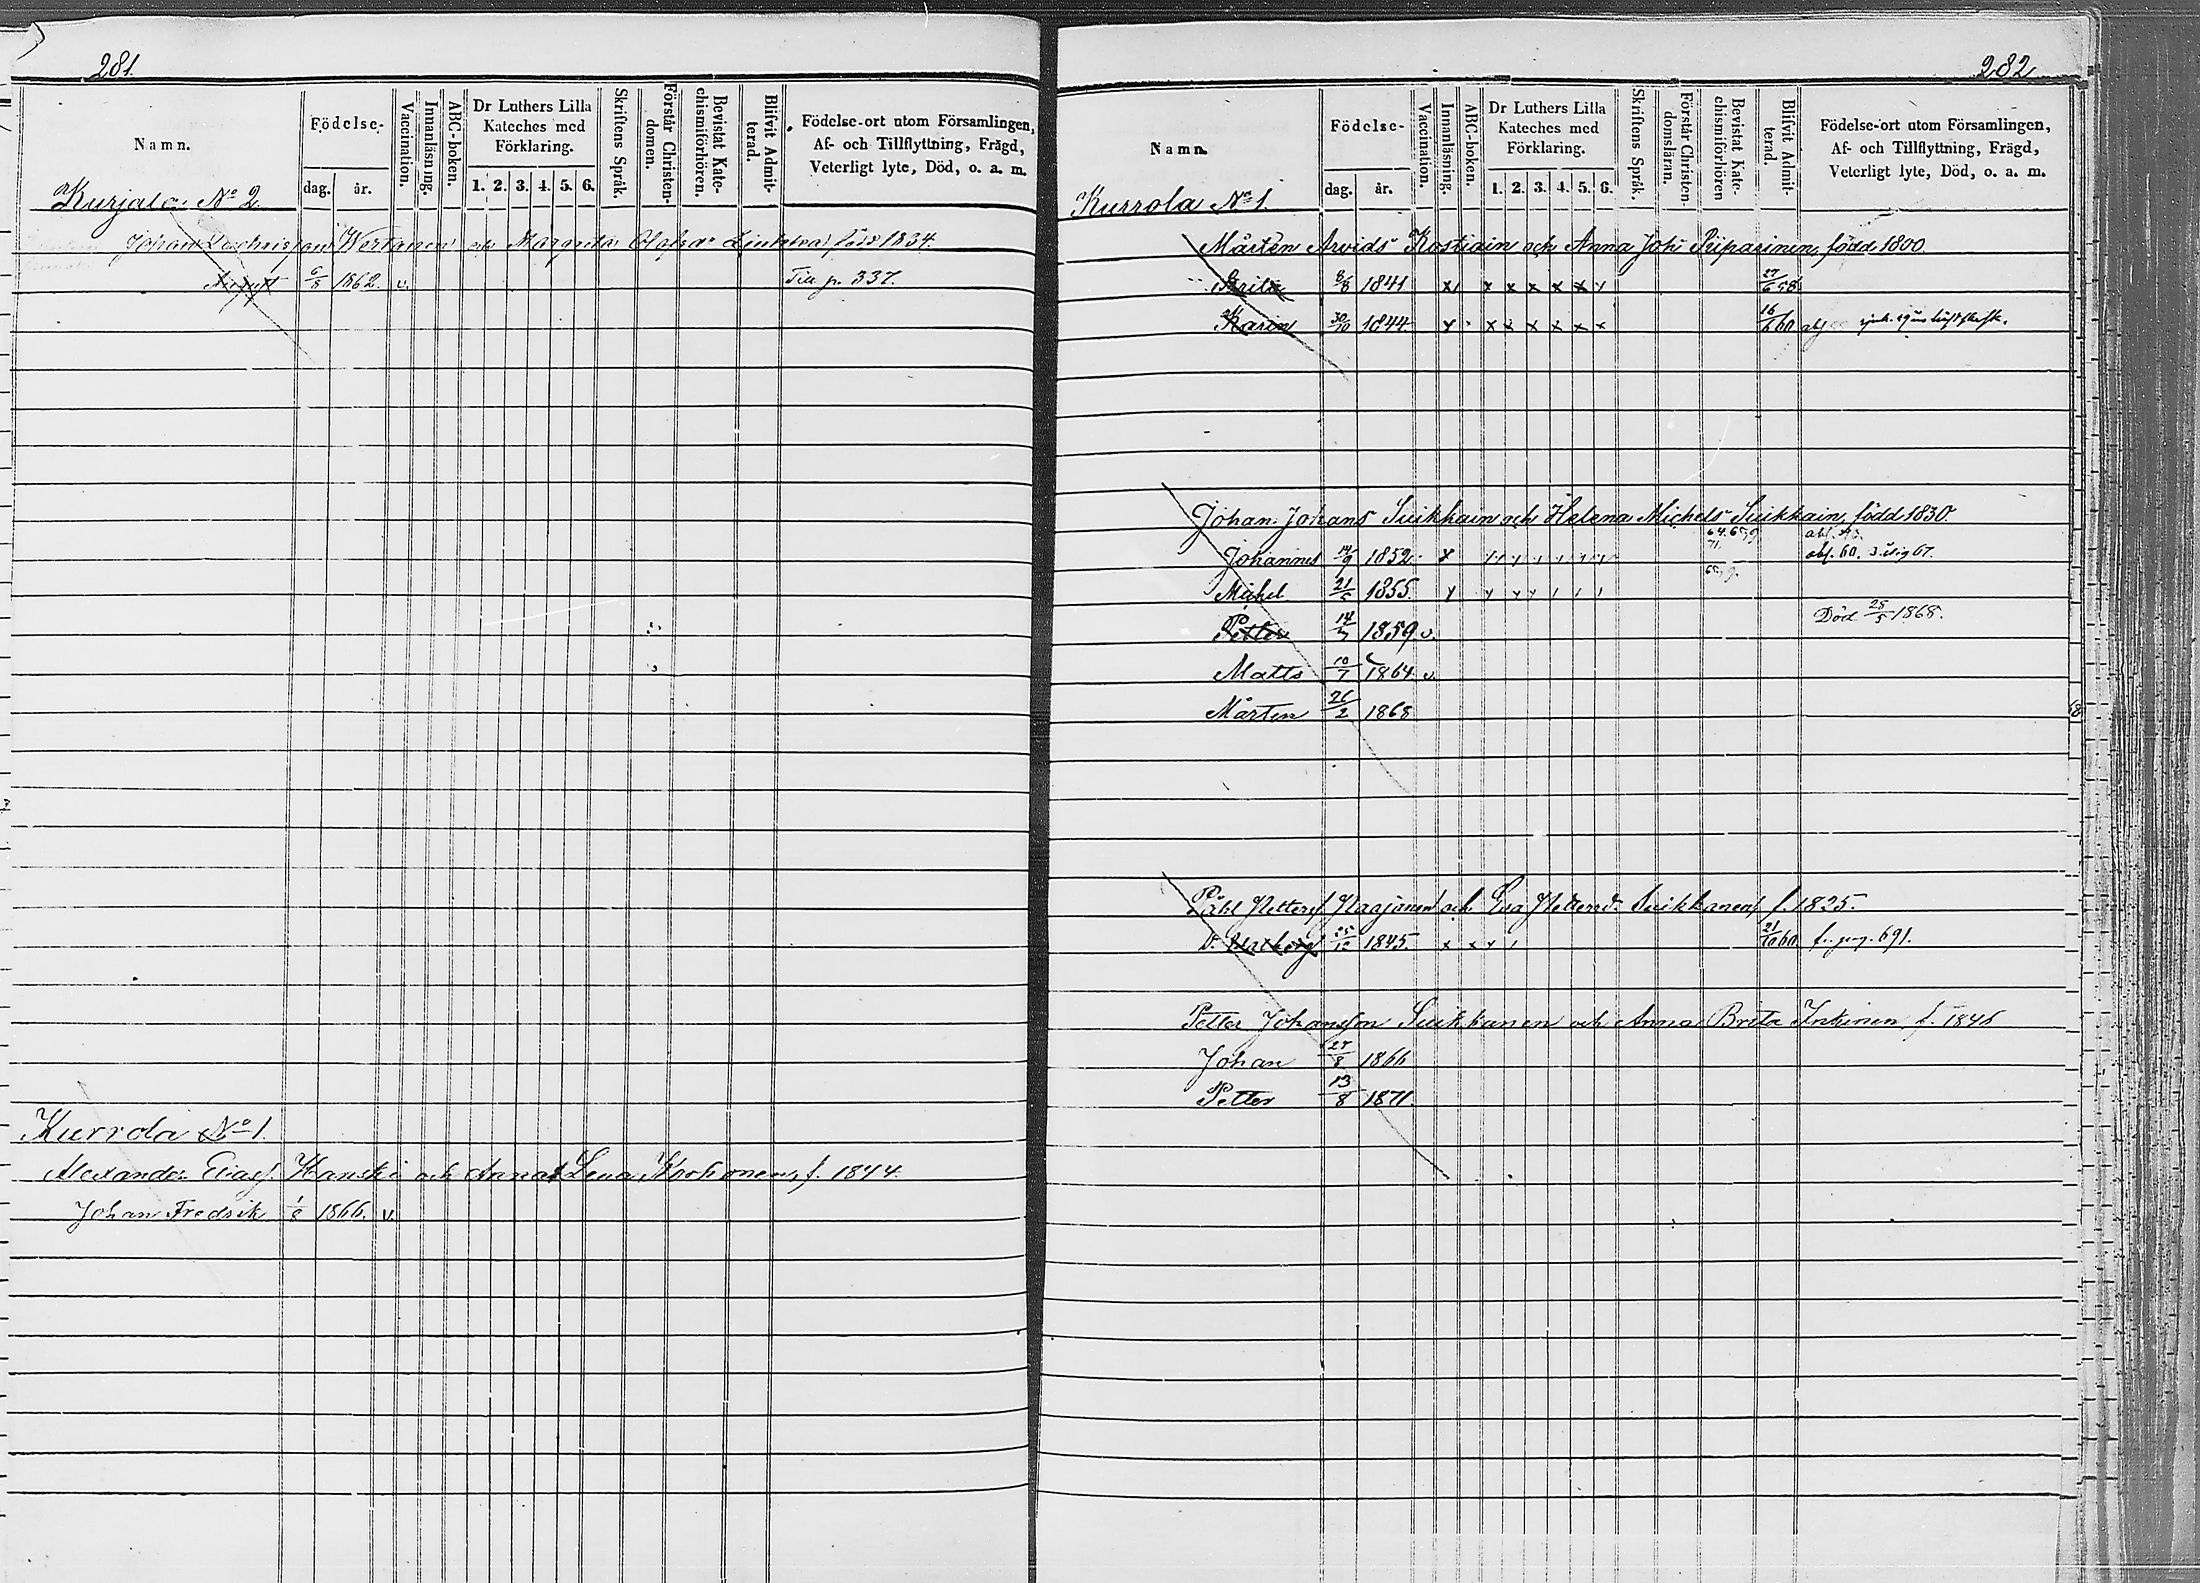 281.
Namn.
Födelse-
dag. år.
Vaccination.
Innanläsning.
ABC-boken.
Dr Luthers Lilla
Kateches med
Förklaring.
1. 2. 3. 4. 5. 6.
Skriftens Språk.
Förstår Christen-
domen.
Bevistat Kate-
chismiförhören.
Blifvit Admit-
terad.
Födelse-ort utom Församlingen,
Af- och Tillflyttning, Frägd,
Veterligt lyte, Död, o. a. m.
Kurjala No 2
Johan Wertanen och Margreta född 1834.
August 6/8 1862. v. Till p. 337.
Kurrola No 1.
Alexander Eliass. Hanski och Anna Lena Korhonen, f. 1844.
Johan Fredrik 1866. v.
282
Namn.
Födelse-
dag. år.
Vaccination.
Innanläsning.
ABC-boken.
Dr Luthers Lilla
Kateches med
Förklaring.
1. 2. 3. 4. 5. 6.
Skriftens Språk.
Förstår Christen-
domsläran.
Bevistat Kate-
chismiförhören
Blifvit Admit-
terad.
Födelse-ort utom Församlingen,
Af- och Tillflyttning, Frägd,
Veterligt lyte, Död, o. a. m.
Kurrola No 1.
Mårten Arvids Kostiain och Anna Joh: Piiparinen, född 1800.
Brita 8/8 1841 x x x x x x 27/6 58
Karin 30/10 1844 x x x x x x x 16/6 60
Johan Johans Suikkain och Helena Michels Suikkain, född 1830.
Johannes 14/9 1852 x
Michel 21/5 1855.
Petter 1859 v. Död 25/5 1868.
Matts 10/7 1864 v.
Mårten 26/2 1868
Påhl Petters Naajanen och Eva Pettersd. Suikkanen f. 1825.
1845 x x x 21/10 60 691.
Petter Johansson Suikkanen och Anna Brita Intinen f. 1846
Johan 27/8 1866
Petter 13/8 1871.